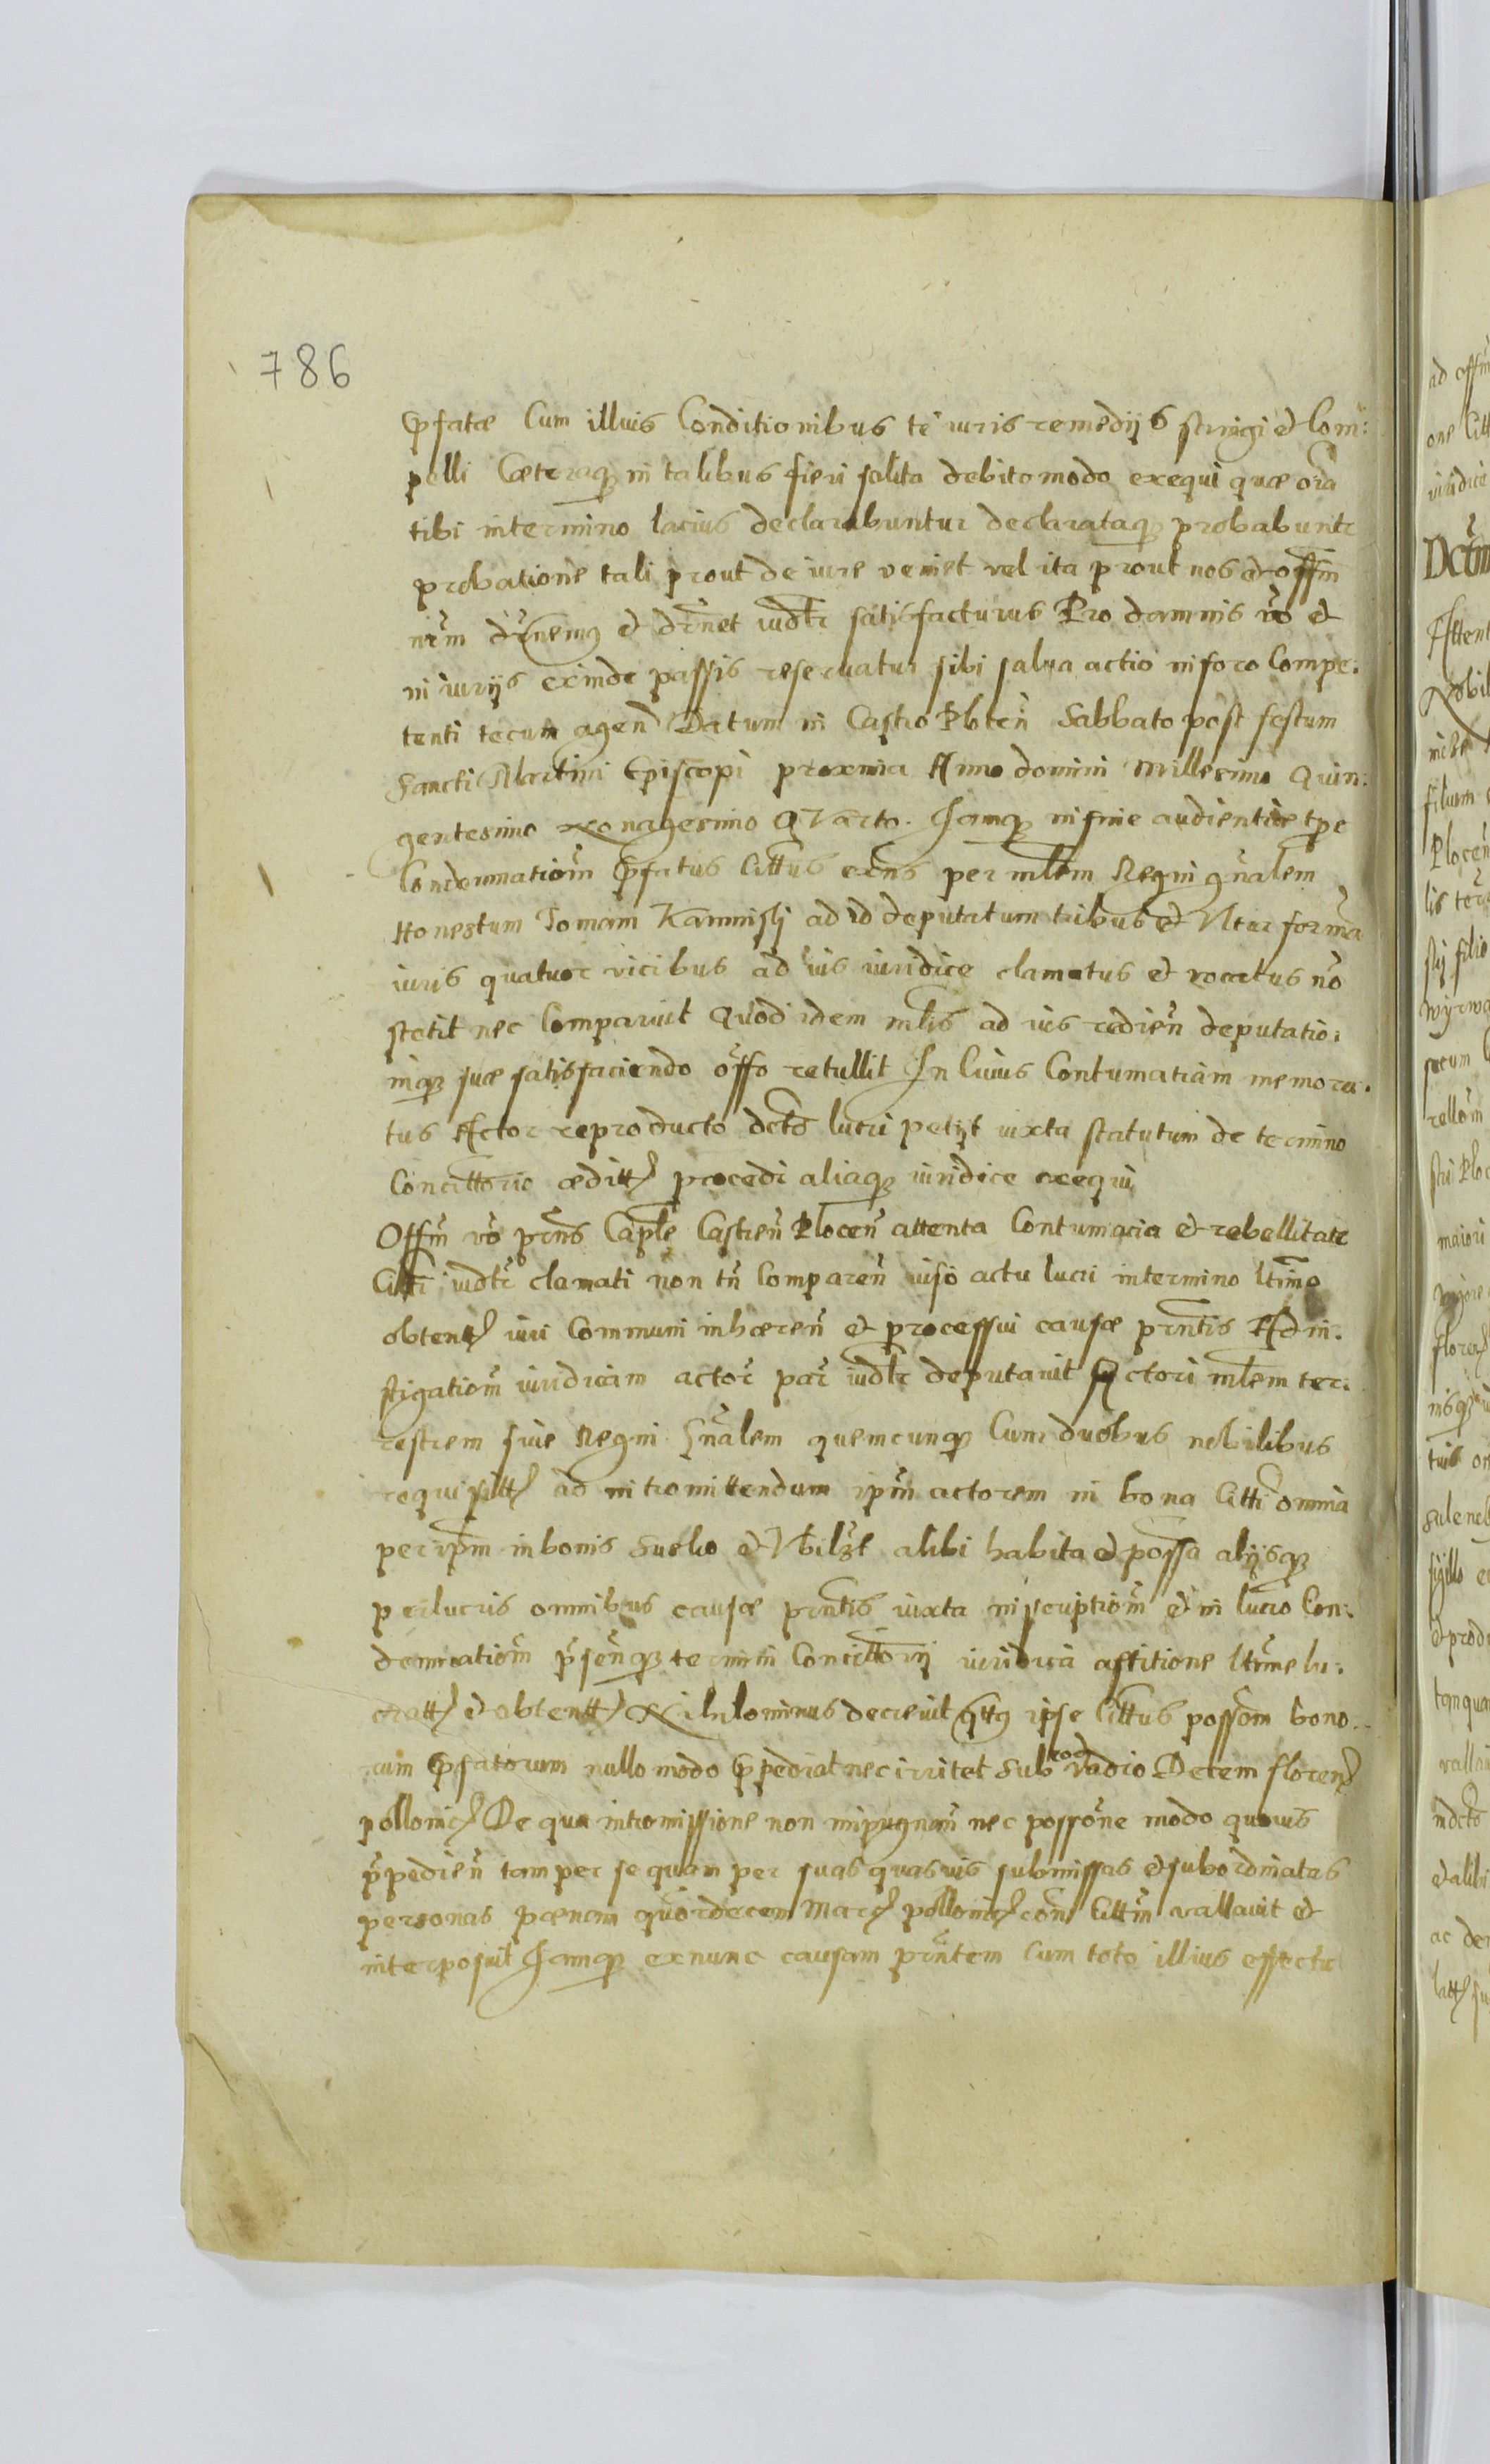 786
Pfatæ Cum illius Conditionibus te iuris remedijs stringi et Com:
pelli Cæteraq3 in talibus fieri solita debito modo exequi quæ oīa
tibi in termino latius declarabuntur declarataq3 probabuntr
probatione tali prout de iure veniet vel ita prout nos et offm
nrm drnemq et drnet iudtr satisfacturus Pro damnis vo et
iniurijs exinde passis reseruatur sibi salua actio in foro Compe.
tenti tecum agen Datum in Castro Plocen Sabbato post festum
Sancti Martini Episcopi proxima Anno domini Millesimo Quin:
gentesimo Nonagesimo Quarto. Iamq3 in fine audientiæ tpe
Condemnationi Pfatus Cittus exns per mlem Regni gnalem
Honestum Tomam Kaminsky ad id deputatum tribus et Vltur forma
iuris quatuor vicibus ad ius iuridice clamatus et vocatus no
stetit nec Comparuit Quod idem mlis ad ius redien deputatio.
niq3 suæ satisfaciendo offo retullit In Cuius Contumatiam memora.
tus Actor reproducto dcto lucri petyt iuxta statutum de termino
Concittorio æditt procedi aliaq3 iuridice exequi
Offm vo prns Caple Castren Plocen attenta Contumacia et rebellitate
Citti iudtr clamati non tn Comparen viso actu lucri in termino ltimo
obtent iuri Communi inhæren et processui causæ prntis Ad in.
stigationi iuridicam actor par iudtr deputauit Actori mlem ter.
restrem siue Regni Gnalem quemcunq3 Cum duobus nobilibus
requisitt ad intromittendum ipm actorem in bona Citti omnia
per ipm in bonis Suslio et Vbilzt alibi habita et possa alijsq3
per lucris omnibus causæ prntis iuxta inscriptiom et in lucro Con.
demnatiom psenq3 termini Concittorij iuridica astitione ltime lu.
cratt et obtentt Nihilominus decreuit qttq ipse Cittus possom bono.
rum Pfatorum nullo modo Ppediat nec irritet Sub vadio Decem floren
pollonic De qua intromissione non impugnan nec possone modo quouis
ppedien tam per se quam per suas quasuis submissas et subordinatas
personas pœnam quordecem Marc pollonic con Cittm vallauit et
interposuit Iamq3 ex nunc causam prntem Cum toto illius effectu